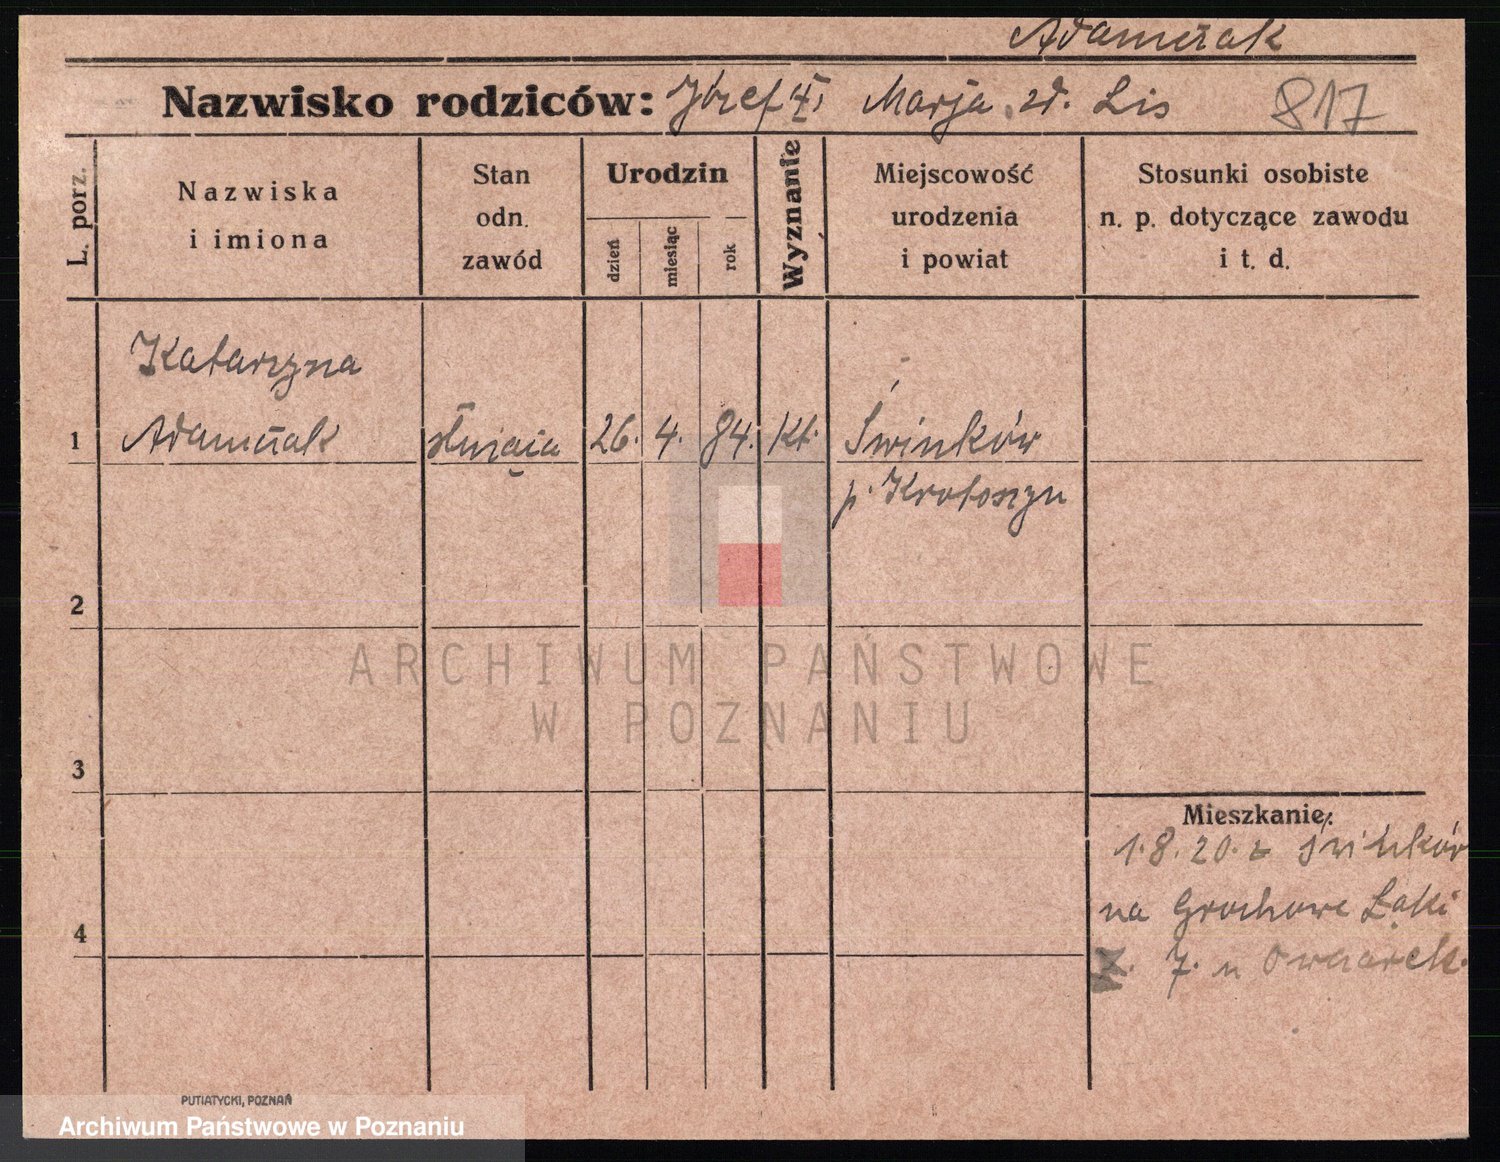 Adamczak
Nazwisko rodziców: Józef i Marja zd. Lis 817
L. porz.
Nazwiska
i imiona
Stan
odn.
zawód
Urodzin
dzień
miesiąc
rok
Wyznanie
Miejscowość
urodzenia
i powiat
Stosunki osobiste
n. p. dotyczące zawodu
i t. d.
Katarzyna
1 Adamczak służąca 26. 4. 84. Kt. Świnków
p. Krotoszyn
2
ARCHIWUM PAŃSTWOWE
W POZNANIU
3
Mieszkanie:
1.8.20. z Świnków
na Grochowe Łąki
4
7. u Owczarek.
PUTIATYCKI, POZNAŃ
Archiwum Państwowe w Poznaniu